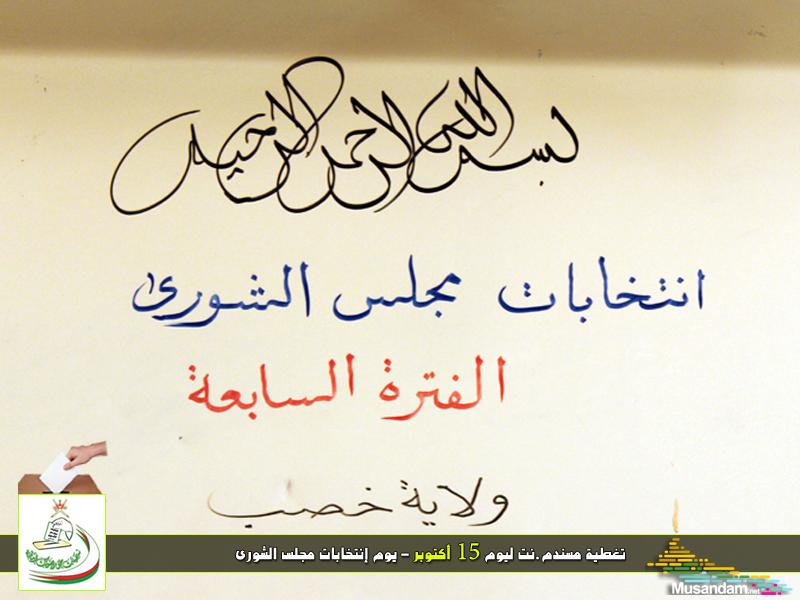 بسم الله الرحمن الرحيم
انتخابات مجلس الشورى
الفترة السابعة
ولاية خصب
تغطية مسندم.نت ليوم 15 أكتوبر - يوم إنتخابات مجلس الشورى
Musandam.net